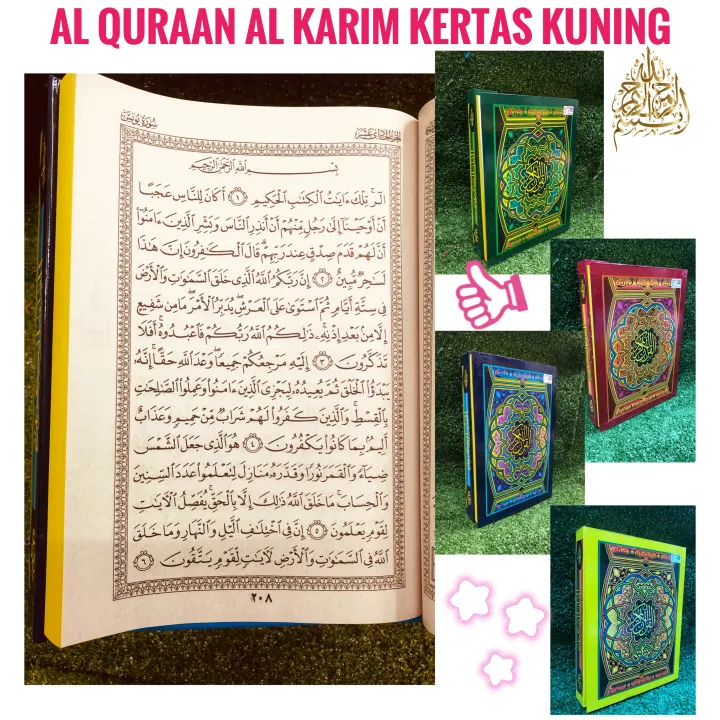 AL QURAAN AL KARIM KERTAS KUNING
بسم الله الرحمن الرحيم
الجزء الحادي عشر
سورة يونس
بِسْمِ اللَّهِ الرَّحْمَٰنِ الرَّحِيمِ
الٓر ۚ تِلْكَ ءَايَٰتُ الْكِتَٰبِ الْحَكِيمِ ١ أَكَانَ لِلنَّاسِ عَجَبًا
أَنْ أَوْحَيْنَآ إِلَىٰ رَجُلٍ مِّنْهُمْ أَنْ أَنذِرِ النَّاسَ وَبَشِّرِ الَّذِينَ ءَامَنُوٓا۟
أَنَّ لَهُمْ قَدَمَ صِدْقٍ عِندَ رَبِّهِمْ ۗ قَالَ الْكَٰفِرُونَ إِنَّ هَٰذَا
لَسَٰحِرٌ مُّبِينٌ ٢ إِنَّ رَبَّكُمُ اللَّهُ الَّذِى خَلَقَ السَّمَٰوَٰتِ وَالْأَرْضَ
فِى سِتَّةِ أَيَّامٍ ثُمَّ اسْتَوَىٰ عَلَى الْعَرْشِ ۖ يُدَبِّرُ الْأَمْرَ ۖ مَا مِن شَفِيعٍ
إِلَّا مِنۢ بَعْدِ إِذْنِهِۦ ۚ ذَٰلِكُمُ اللَّهُ رَبُّكُمْ فَاعْبُدُوهُ ۚ أَفَلَا
تَذَكَّرُونَ ٣ إِلَيْهِ مَرْجِعُكُمْ جَمِيعًا ۖ وَعْدَ اللَّهِ حَقًّا ۚ إِنَّهُۥ
يَبْدَؤُا۟ الْخَلْقَ ثُمَّ يُعِيدُهُۥ لِيَجْزِىَ الَّذِينَ ءَامَنُوا۟ وَعَمِلُوا۟ الصَّٰلِحَٰتِ
بِالْقِسْطِ ۚ وَالَّذِينَ كَفَرُوا۟ لَهُمْ شَرَابٌ مِّنْ حَمِيمٍ وَعَذَابٌ
أَلِيمٌۢ بِمَا كَانُوا۟ يَكْفُرُونَ ٤ هُوَ الَّذِى جَعَلَ الشَّمْسَ
ضِيَآءً وَالْقَمَرَ نُورًا وَقَدَّرَهُۥ مَنَازِلَ لِتَعْلَمُوا۟ عَدَدَ السِّنِينَ
وَالْحِسَابَ ۚ مَا خَلَقَ اللَّهُ ذَٰلِكَ إِلَّا بِالْحَقِّ ۚ يُفَصِّلُ الْءَايَٰتِ
لِقَوْمٍ يَعْلَمُونَ ٥ إِنَّ فِى اخْتِلَٰفِ الَّيْلِ وَالنَّهَارِ وَمَا خَلَقَ
اللَّهُ فِى السَّمَٰوَٰتِ وَالْأَرْضِ لَءَايَٰتٍ لِّقَوْمٍ يَتَّقُونَ ٦
٢٠٨
القرآن الكريم
القرآن الكريم
القرآن الكريم
القرآن الكريم